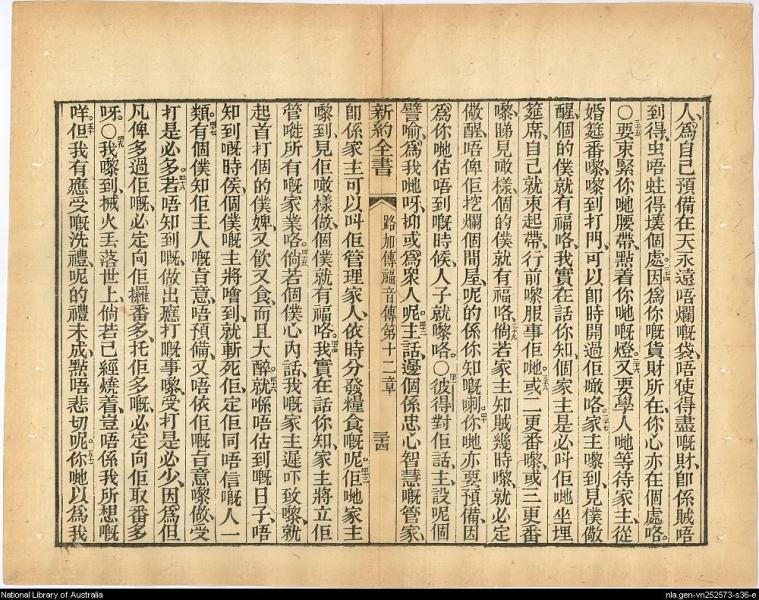 人、爲自己預備在天永遠唔爛嘅袋、唔使得盡嘅財、卽係賊唔
到得、虫唔蛀得壞個處。三四因爲你嘅貨財所在、你心亦在個處咯。
○三五要束緊你哋腰帶、點着你哋嘅燈。三六又要學人哋等待家主、從
婚筵番嚟、嚟到打門、可以卽時開過佢噉咯。三七家主嚟到、見僕儆
醒、個的僕就有福咯、我實在話你知、個家主是必叫佢哋坐埋
筵席、自己就束起帶、行前嚟服事佢哋。三八或二更番嚟、或三更番
嚟、睇見噉樣、個的僕就有福咯。三九倘若家主知賊幾時嚟、就必定
儆醒、唔俾佢挖爛個間屋、呢的係你知嘅喇。四十你哋亦要預備、因
爲你哋估唔到嘅時候、人子就嚟咯。○四一彼得對佢話、主、設呢個
譬喻、爲我哋呀、抑或爲衆人呢。四二主話、邊個係忠心智慧嘅管家、
新約全書 路加傳福音傳第十二章 三十四
卽係家主可以叫佢管理家人、依時分發糧食嘅呢。四三佢哋家主
嚟到見佢噉樣做、個僕就有福咯。四四我實在話你知、家主將立佢
管嗮所有嘅家業咯。四五倘若個僕心內話、我嘅家主遲吓致嚟、就
起首打個的僕婢、又飮又食、而且大醉。四六就喺唔估到嘅日子、唔
知到嘅時侯、個僕嘅主將嚕到、就斬死佢、定佢同唔信嘅人一
類。四七有個僕知佢主人嘅旨意、唔預備、又唔依佢嘅旨意嚟做、受
打是必多。四八若唔知到嘅、做出應打嘅事嚟、受打是必少、因爲但
凡俾多過佢嘅、必定向佢攞番多、托佢多嘅、必定向佢取番多
呀。○四九我嚟到、搣火丟落世上、倘若已經燒着、豈唔係我所想嘅
咩。五十但我有應受嘅洗禮、呢的禮未成、點唔悲切呢。五一你哋以爲我